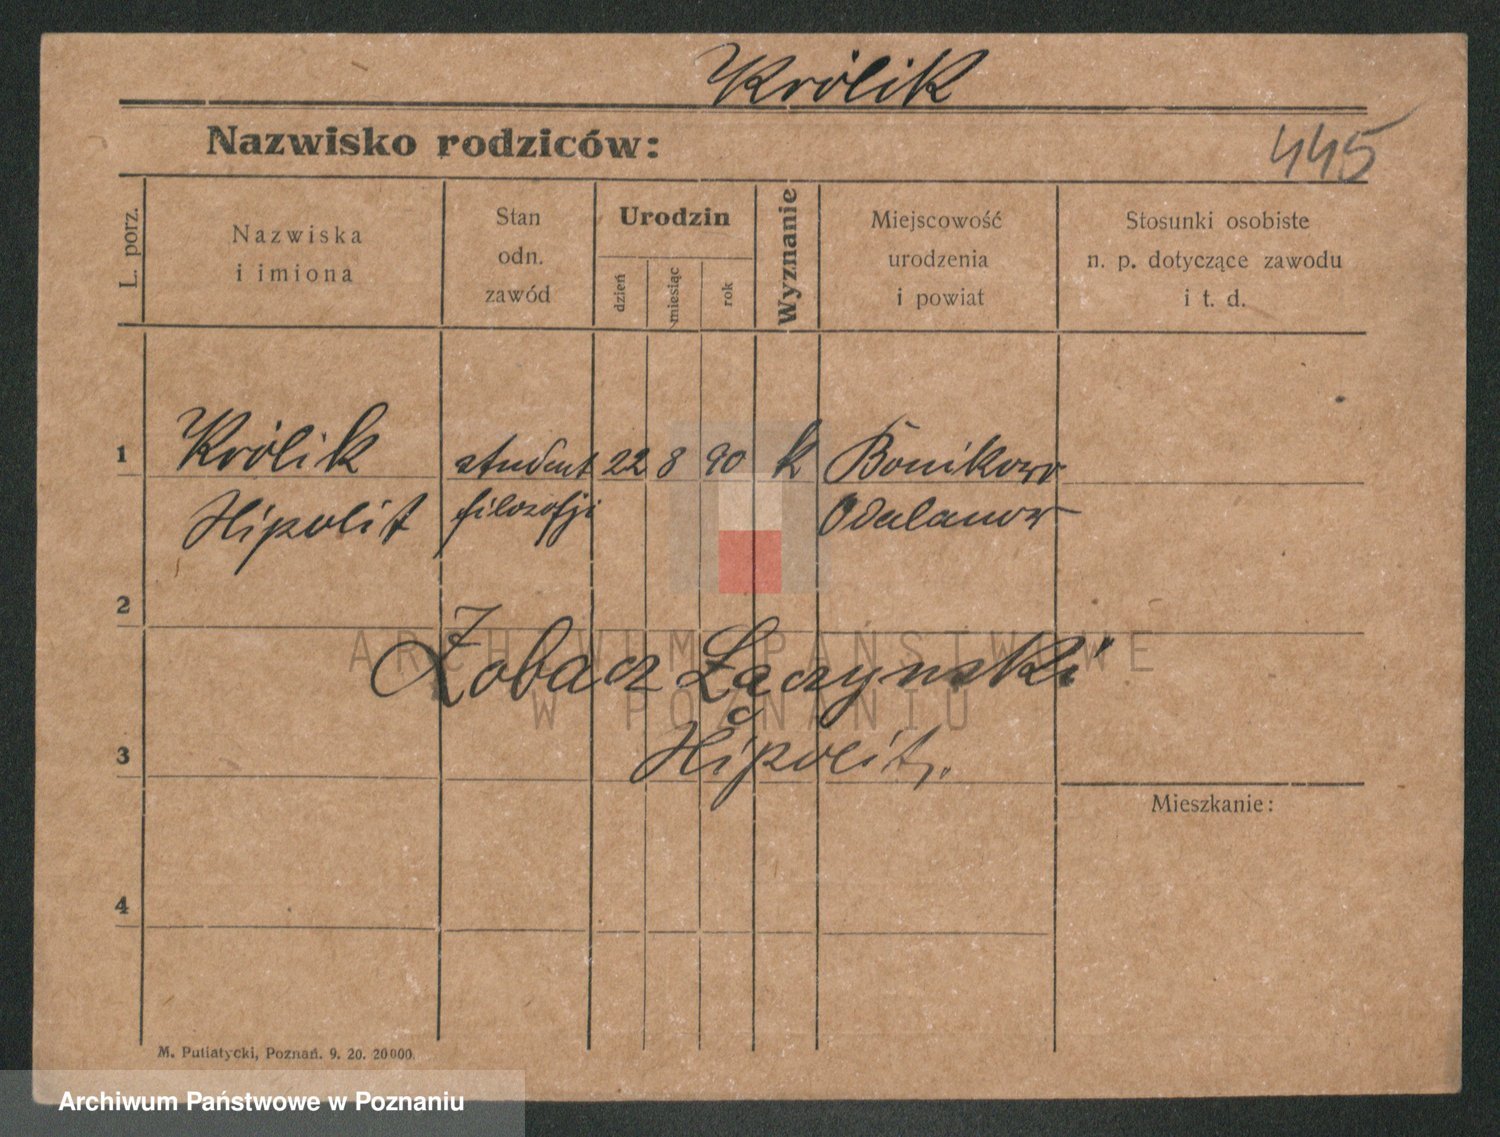 Królik
Nazwisko rodziców:
445
L. porz.
Nazwiska
i imiona
Stan
odn.
zawód
Urodzin
dzień
miesiąc
rok
Wyznanie
Miejscowość
urodzenia
i powiat
Stosunki osobiste
n. p. dotyczące zawodu
i t. d.
1
Królik
student
22
8
90
k
Bonikowo
Hipolit
filozofji
Odalanow
2
Zobacz Łączynski
ARCHIWUM PAŃSTWOWE
W POZNANIU
Hipolit.
3
Mieszkanie:
4
M. Putiatycki, Poznań. 9. 20. 20000.
Archiwum Państwowe w Poznaniu